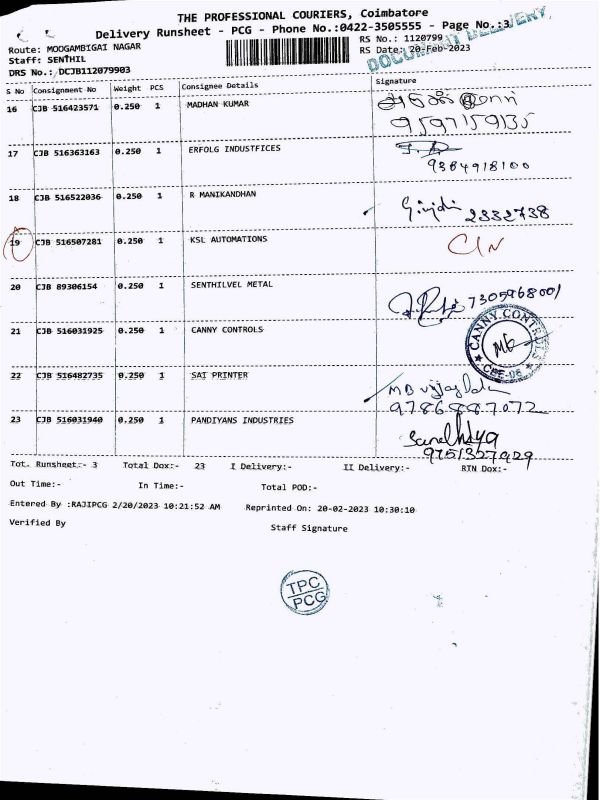 THE PROFESSIONAL COURIERS, Coimbatore
Delivery Runsheet - PCG - Phone No.:0422-3505555 - Page No.:3
DOCUMENT DELIVERY
Route: MOOGAMBIGAI NAGAR
Staff: SENTHIL
DRS No.: DCJB112079903
RS No.: 1120799
RS Date: 20-Feb-2023
S No Consignment No Weight PCS Consignee Details Signature
16 CJB 516423571 0.250 1 MADHAN KUMAR
9597159135
17 CJB 516363163 0.250 1 ERFOLG INDUSTFICES
9384918100
18 CJB 516522036 0.250 1 R MANIKANDHAN
2332738
19 CJB 516507281 0.250 1 KSL AUTOMATIONS
20 CJB 89306154 0.250 1 SENTHILVEL METAL
7305968001
21 CJB 516031925 0.250 1 CANNY CONTROLS
CANNY CONTROLS
CBE-06
22 CJB 516482735 0.250 1 SAI PRINTER
MB
9786887072
23 CJB 516031940 0.250 1 PANDIYANS INDUSTRIES
Sandhiya
9751327929
Tot. Runsheet:- 3 Total Dox:- 23 I Delivery:- II Delivery:- RTN Dox:-
Out Time:- In Time:- Total POD:-
Entered By :RAJIPCG 2/20/2023 10:21:52 AM Reprinted On: 20-02-2023 10:30:10
Verified By Staff Signature
TPC
PCG